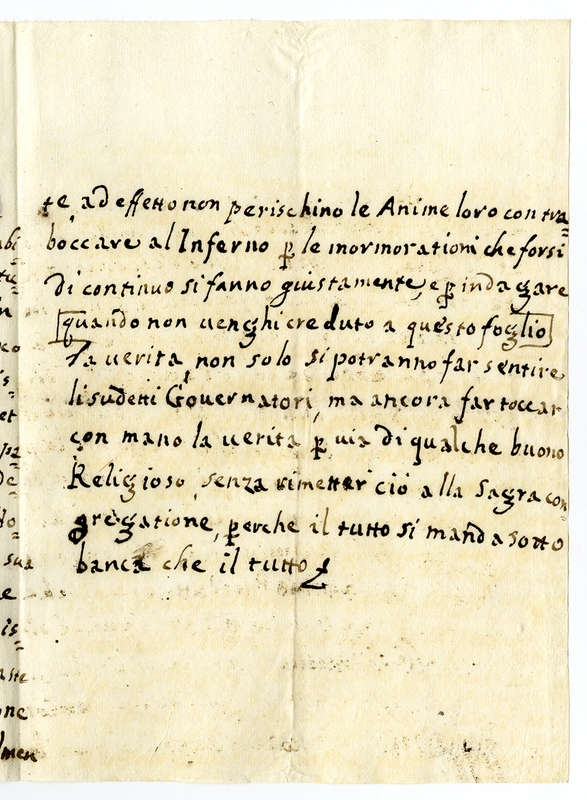 te, ad effetto non perischino le Anime loro con tra=
boccare al Inferno ꝑ le mormorationi che forsi
di continuo si fanno giustamente, e ꝑ indagare
[quando non uenghi creduto a questo foglio]
la uerita, non solo si potranno far sentire
li sudetti Gouernatori, ma ancora far toccar
con mano la uerita ꝑ uia di qualche buono
Religioso, senza rimetter ciò alla Sagra con
gregatione, ꝑerche il tutto si manda sotto
banca che il tutto